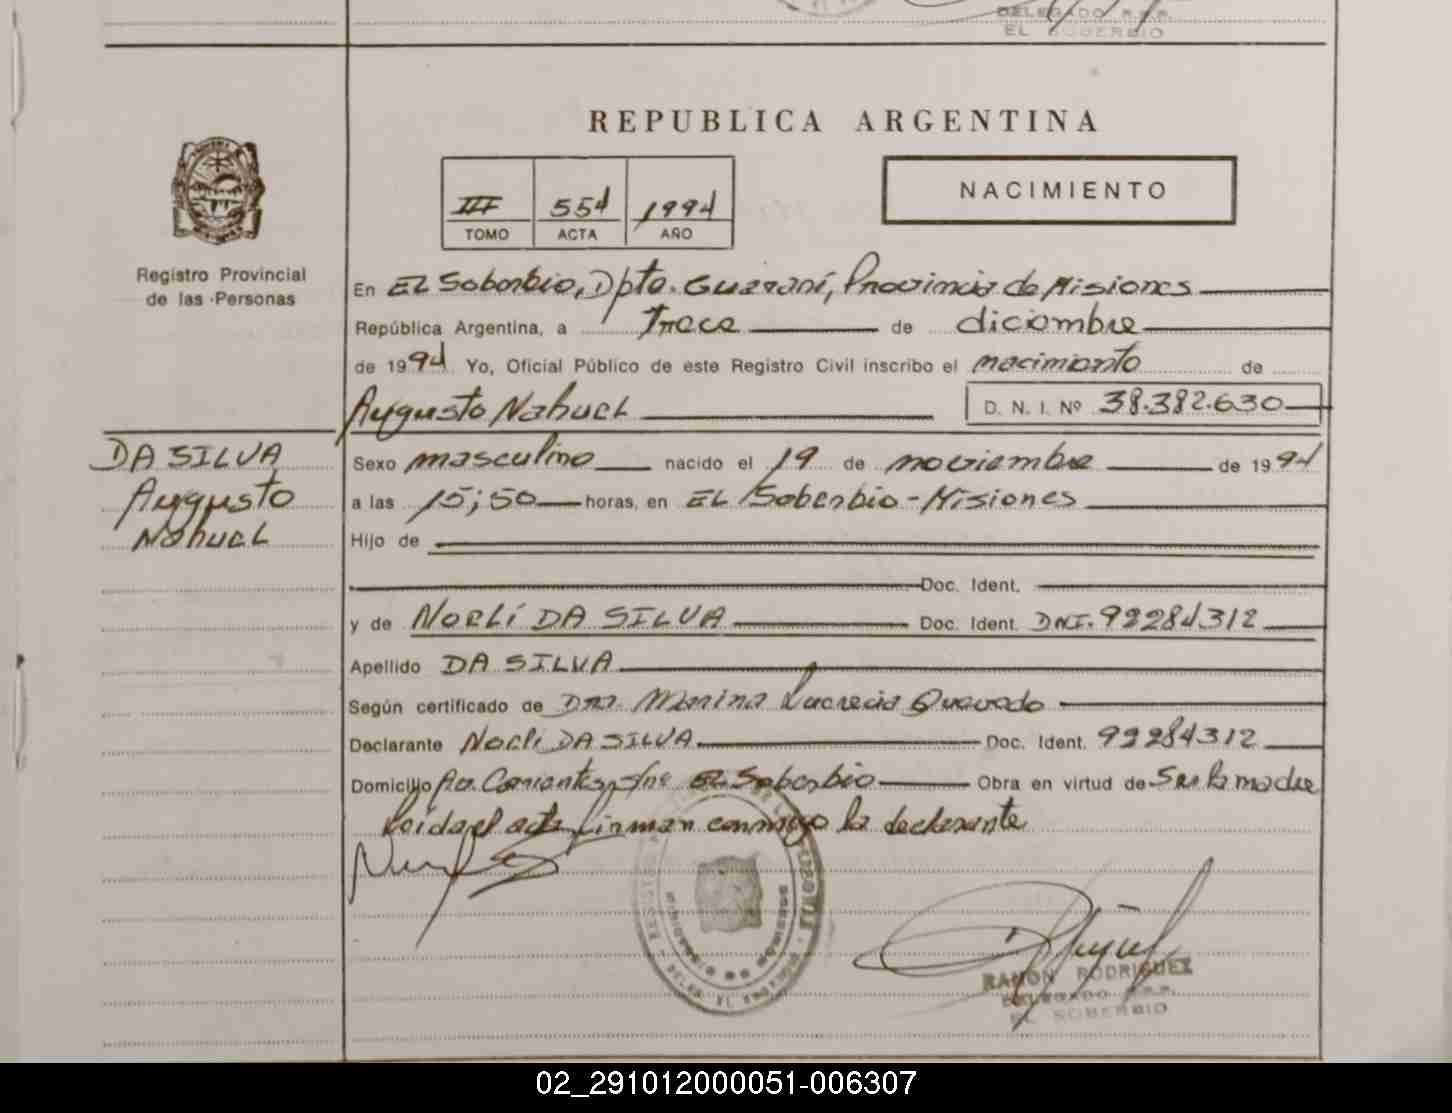 DELEGADO R.P.P.
EL SOBERBIO
REPUBLICA ARGENTINA
NACIMIENTO
III 554 1994
TOMO ACTA AÑO
Registro Provincial
de las Personas
En EL Soberbio, Dpto. Guaraní, Provincia de Misiones
República Argentina, a Trece de diciembre
de 1994 Yo, Oficial Público de este Registro Civil inscribo el nacimiento de
Augusto Nahuel D. N. I. Nº 38.382.630
DA SILVA
Augusto
Nahuel
Sexo masculino nacido el 19 de noviembre de 1994
a las 15;50 horas, en EL Soberbio - Misiones
Hijo de
Doc. Ident.
y de NOELÍ DA SILVA Doc. Ident. DNI. 92284312
Apellido DA SILVA
Según certificado de Dra. Marina Lucrecia Quevedo
Declarante Noeli DA SILVA Doc. Ident. 92284312
Domicilio Av. Corrientes s/nº EL Soberbio Obra en virtud de Ser la madre
Leida el acta firman conmigo la declarante
RAMON RODRIGUEZ
DELEGADO R.P.P.
EL SOBERBIO
02_291012000051-006307